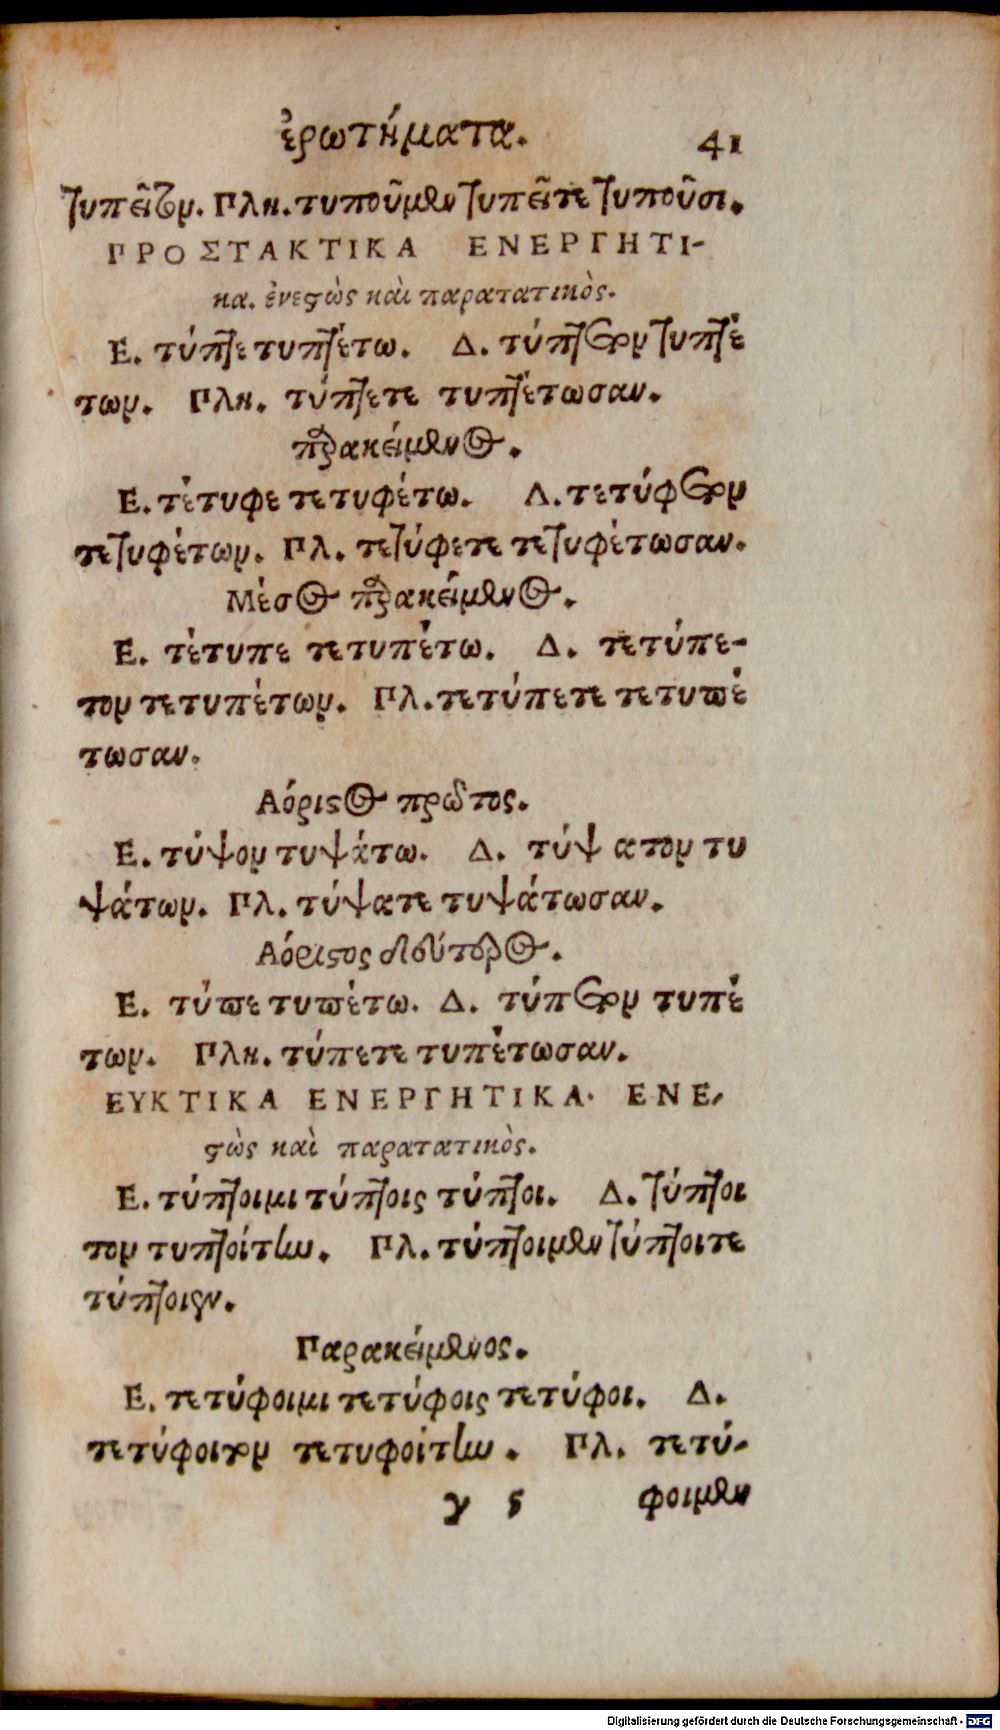 ἐρωτήματα. 41
τυπεῖτον. Πλη. τυποῦμεν τυπεῖτε τυποῦσι.
ΠΡΟΣΤΑΚΤΙΚΑ ΕΝΕΡΓΗΤΙ-
κα. ἐνεϛὼς καὶ παρατατικὸς.
Ε. τύπτε τυπτέτω. Δ. τύπτετον τυπτέ
των. Πλη. τύπτετε τυπτέτωσαν.
πρακείμενος.
Ε. τέτυφε τετυφέτω. Δ. τετύφετον
τετυφέτων. Πλ. τετύφετε τετυφέτωσαν.
Μέσος πρακείμενος.
Ε. τέτυπε τετυπέτω. Δ. τετύπε-
τον τετυπέτων. Πλ. τετύπετε τετυπέ
τωσαν.
Αόριϛος πρῶτος.
Ε. τύψον τυψάτω. Δ. τύψατον τυ
ψάτων. Πλ. τύψατε τυψάτωσαν.
Αόριϛος δεύτερος.
Ε. τύπε τυπέτω. Δ. τύπετον τυπέ
των. Πλη. τύπετε τυπέτωσαν.
ΕΥΚΤΙΚΑ ΕΝΕΡΓΗΤΙΚΑ. ΕΝΕ-
ϛὼς καὶ παρατατικὸς.
Ε. τύπτοιμι τύπτοις τύπτοι. Δ. τύπτοι
τον τυπτοίτην. Πλ. τύπτοιμεν τύπτοιτε
τύπτοιεν.
Παρακείμενος.
Ε. τετύφοιμι τετύφοις τετύφοι. Δ.
τετύφοιτον τετυφοίτην. Πλ. τετύ-
γ 5 φοιμεν
Digitalisierung gefördert durch die Deutsche Forschungsgemeinschaft - DFG